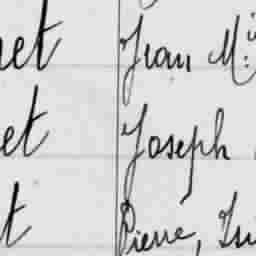 et Jean M.
et Joseph
t Pierre,